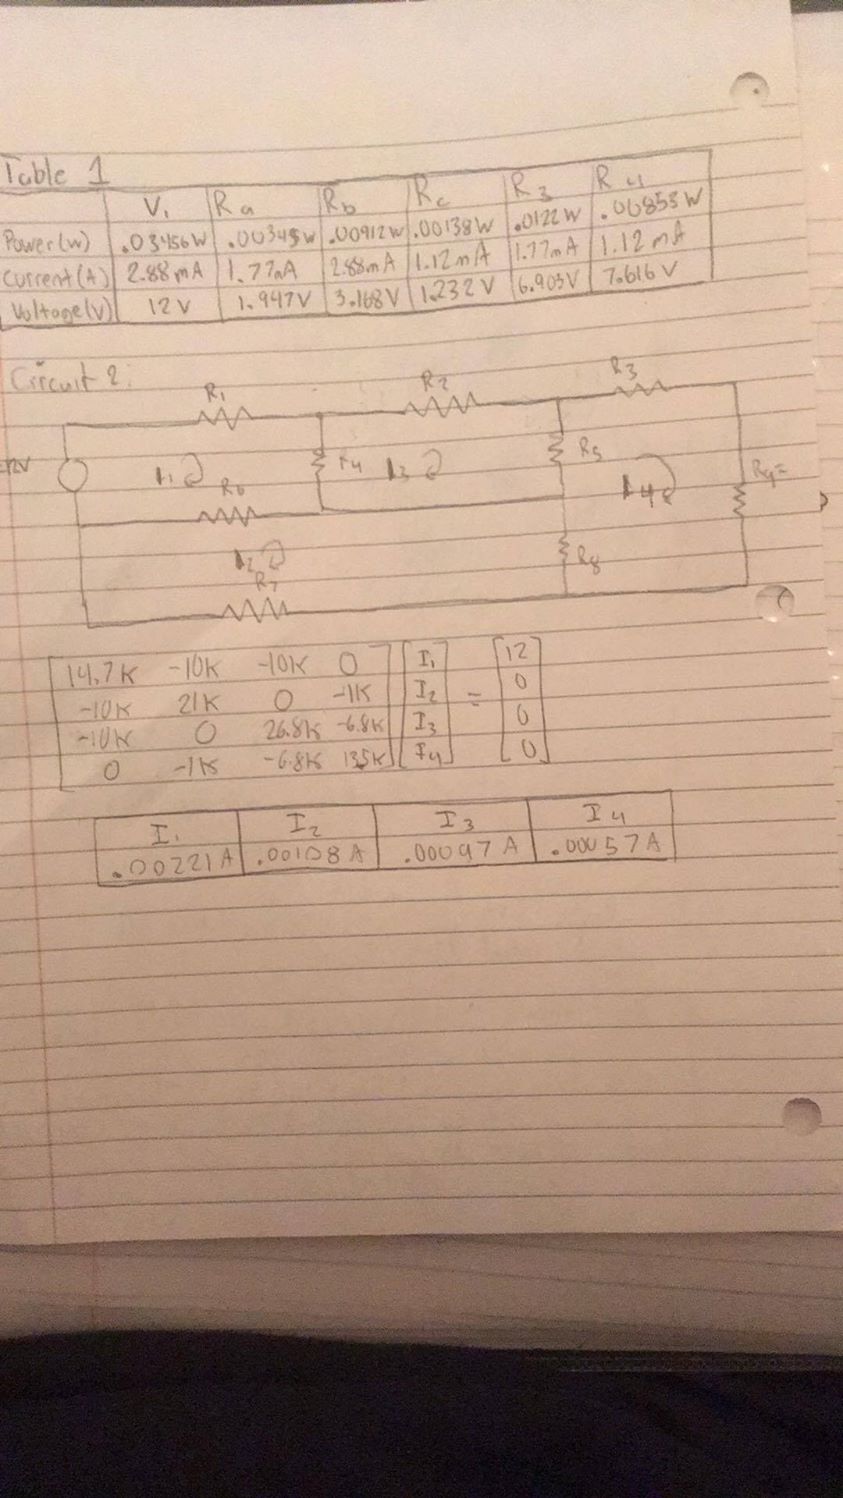 Table 1
V1 Ra Rb Rc R3 R4
Power(w) .03456W .00345W .00912W .00138W .0122W .00853W
Current(A) 2.88mA 1.77mA 2.88mA 1.12mA 1.77mA 1.12mA
Voltage(V) 12V 1.947V 3.168V 1.232V 6.903V 7.616V
Circuit 2:
R1 R2 R3
12V I1 R4 I3 R5 I4 R9=
R6
I2 R8
R7
14.7K -10K -10K 0 I1 12
-10K 21K 0 -1K I2 = 0
-10K 0 26.8K -6.8K I3 0
0 -1K -6.8K 13.5K I4 0
I1 I2 I3 I4
.00221A .00108A .00097A .00057A